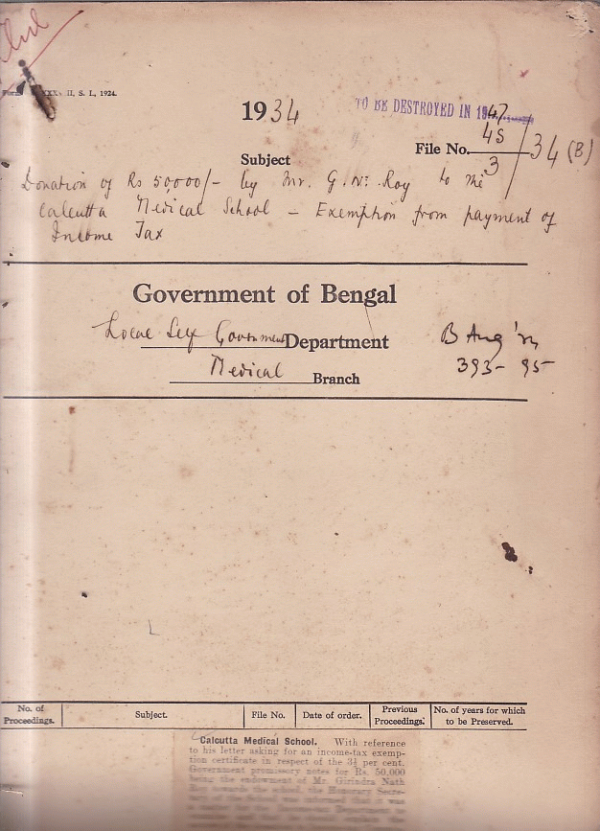 S. I., 1924.
1934
TO BE DESTROYED IN 1947
File No. 4S/3/34 (B)
Subject
Donation of Rs 50,000/- by Mr. G. N. Roy to the
Calcutta Medical School - Exemption from payment of
Income Tax
Government of Bengal
Local Self Government Department
Medical Branch
B Aug
393-95
No. of Proceedings.
Subject.
File No.
Date of order.
Previous Proceedings.
No. of years for which to be Preserved.
Calcutta Medical School. With reference
to his letter asking for an income-tax exemp-
tion certificate in respect of the 3½ per cent.
Government promissory notes for Rs. 50,000
being the endowment of Mr. Girindra Nath
Roy towards the school, the Honorary Secre-